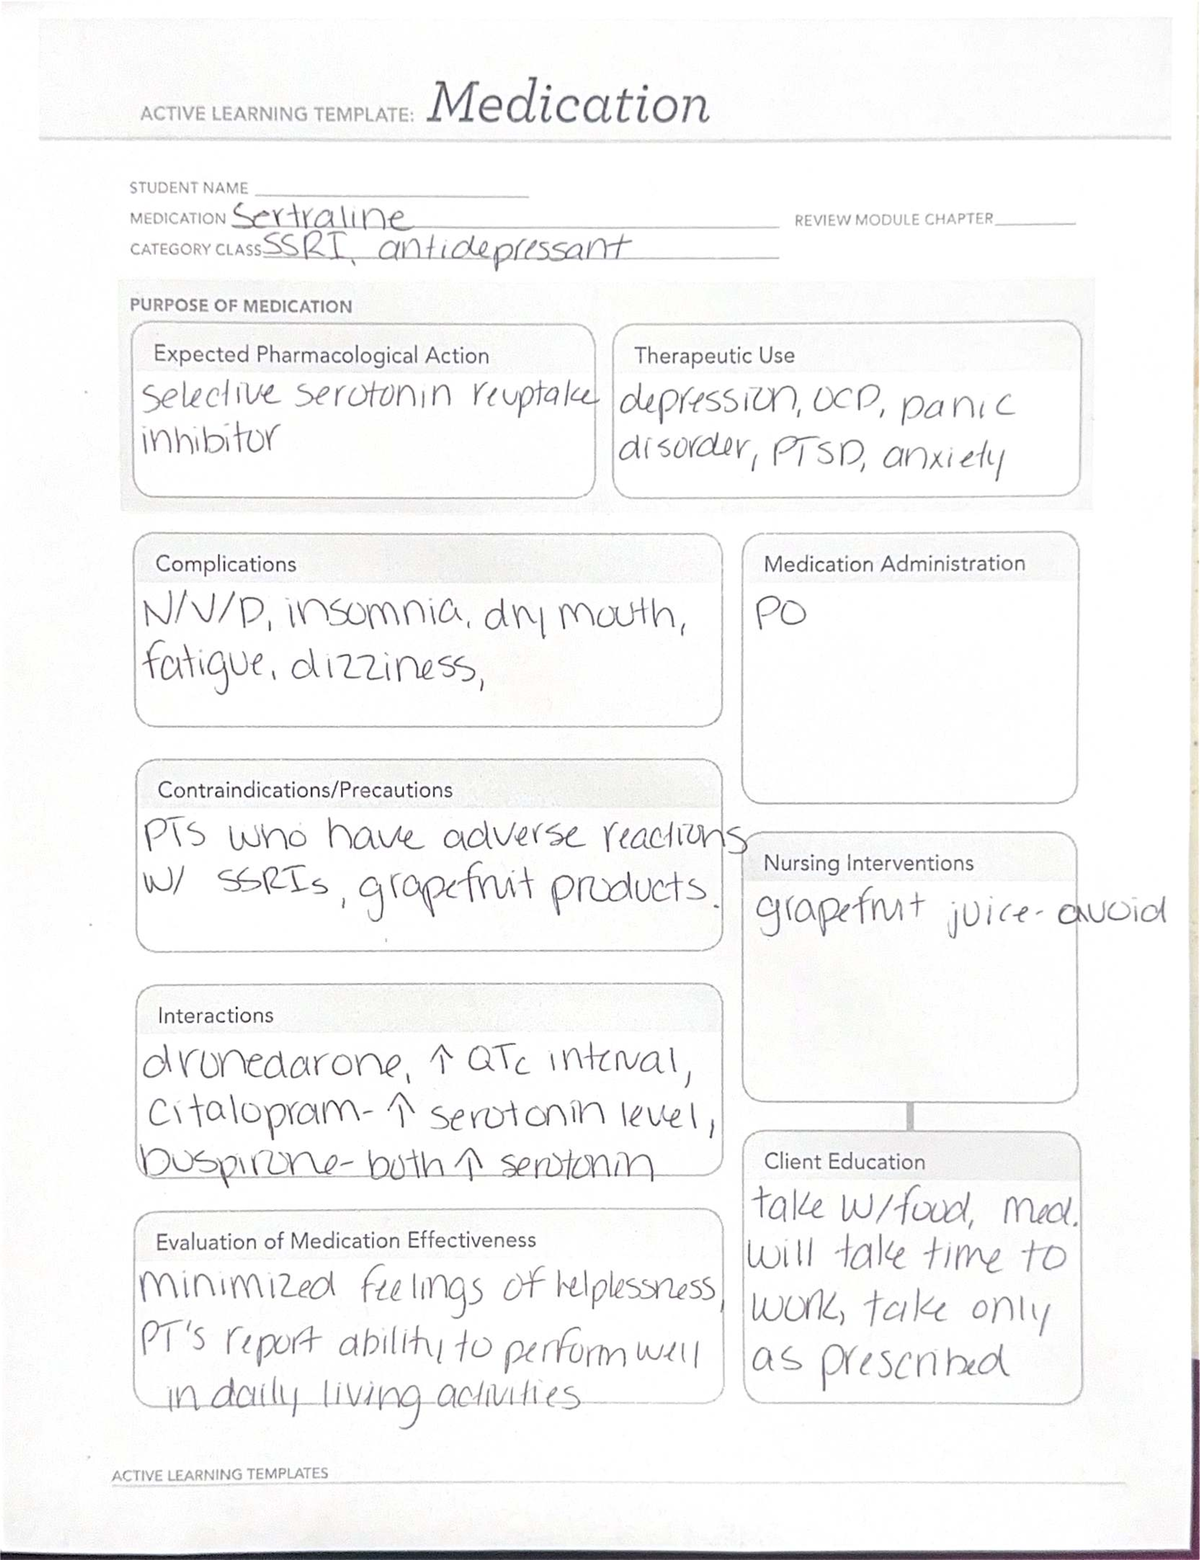 ACTIVE LEARNING TEMPLATE: Medication
STUDENT NAME
MEDICATION Sertraline
REVIEW MODULE CHAPTER
CATEGORY CLASS SSRI, antidepressant
PURPOSE OF MEDICATION
Expected Pharmacological Action
selective serotonin reuptake
inhibitor
Therapeutic Use
depression, OCD, panic
disorder, PTSD, anxiety
Complications
N/V/D, insomnia, dry mouth,
fatigue, dizziness,
Medication Administration
PO
Contraindications/Precautions
PTS who have adverse reactions
w/ SSRIs, grapefruit products.
Nursing Interventions
grapefruit juice- avoid
Interactions
dronedarone, ↑ QTc interval,
citalopram- ↑ serotonin level,
buspirone- both ↑ serotonin
Client Education
take w/food, med.
will take time to
work, take only
as prescribed
Evaluation of Medication Effectiveness
minimized feelings of helplessness,
PT's report ability to perform well
in daily living activities
ACTIVE LEARNING TEMPLATES